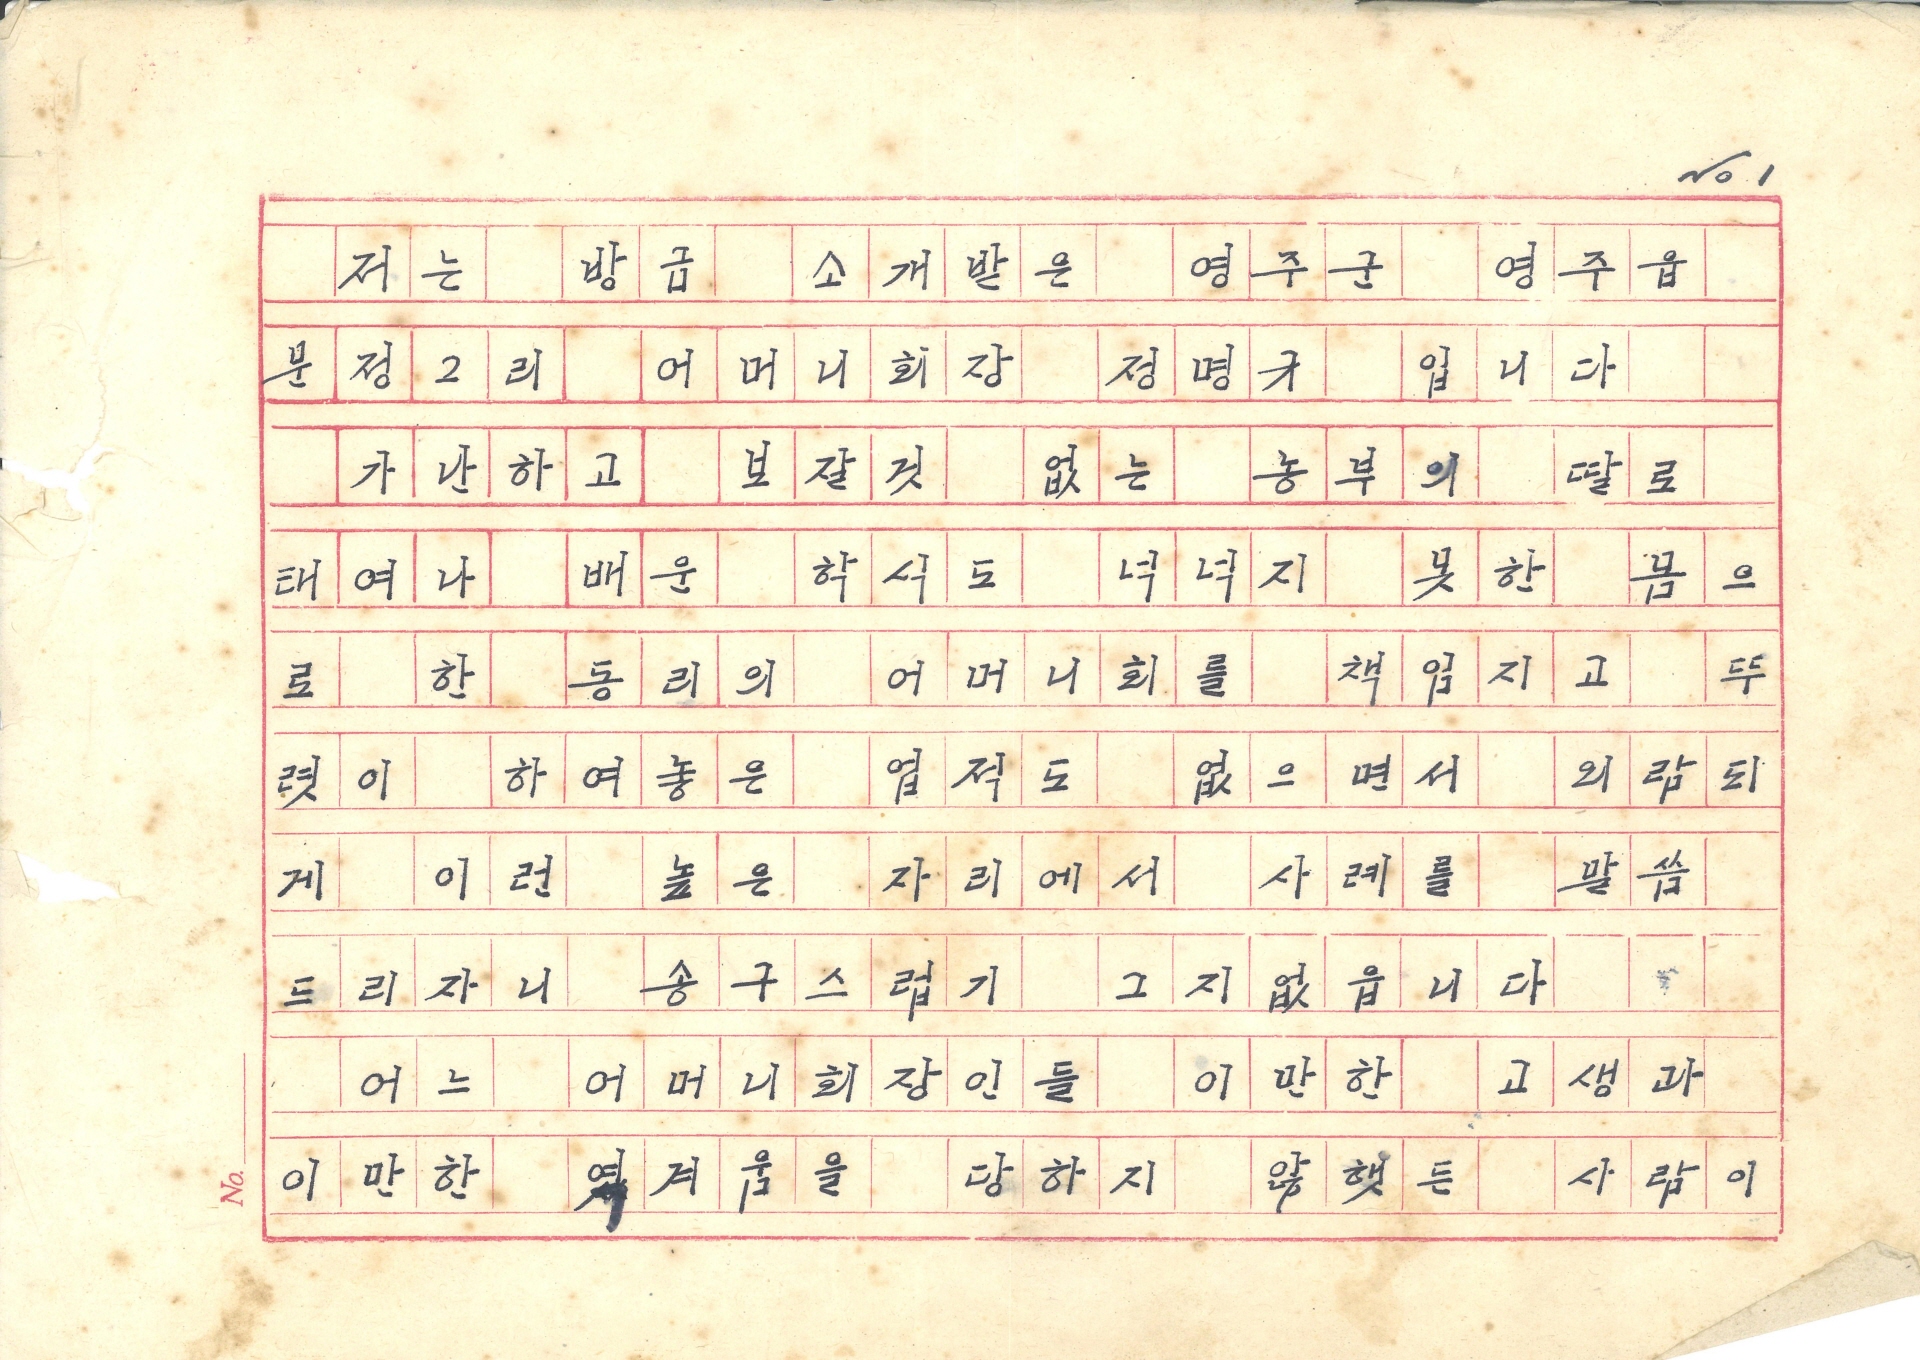 No 1
저는 방금 소개받은 영주군 영주읍
문정2리 어머니회장 정명규 입니다
가난하고 보잘것 없는 농부의 딸로
태여나 배운 학식도 넉넉지 못한 몸으
로 한 동리의 어머니회를 책임지고 뚜
렷이 하여놓은 업적도 없으면서 외람되
게 이런 높은 자리에서 사례를 말씀
드리자니 송구스럽기 그지없읍니다
어느 어머니회장인들 이만한 고생과
이만한 역겨움을 당하지 않햇든 사람이
No.